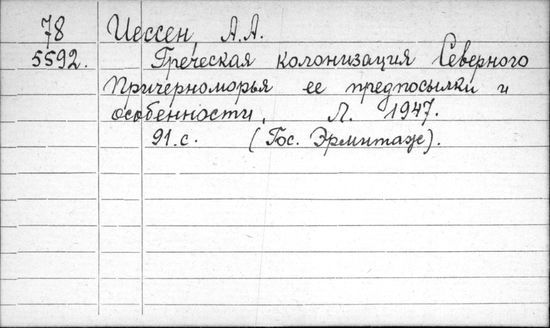 78 Иессен, А.А.
5592. Греческая колонизация Северного
Причерноморья ее предпосылки и
особенности. Л. 1947.
91.с. (Гос. Эрмитаж).